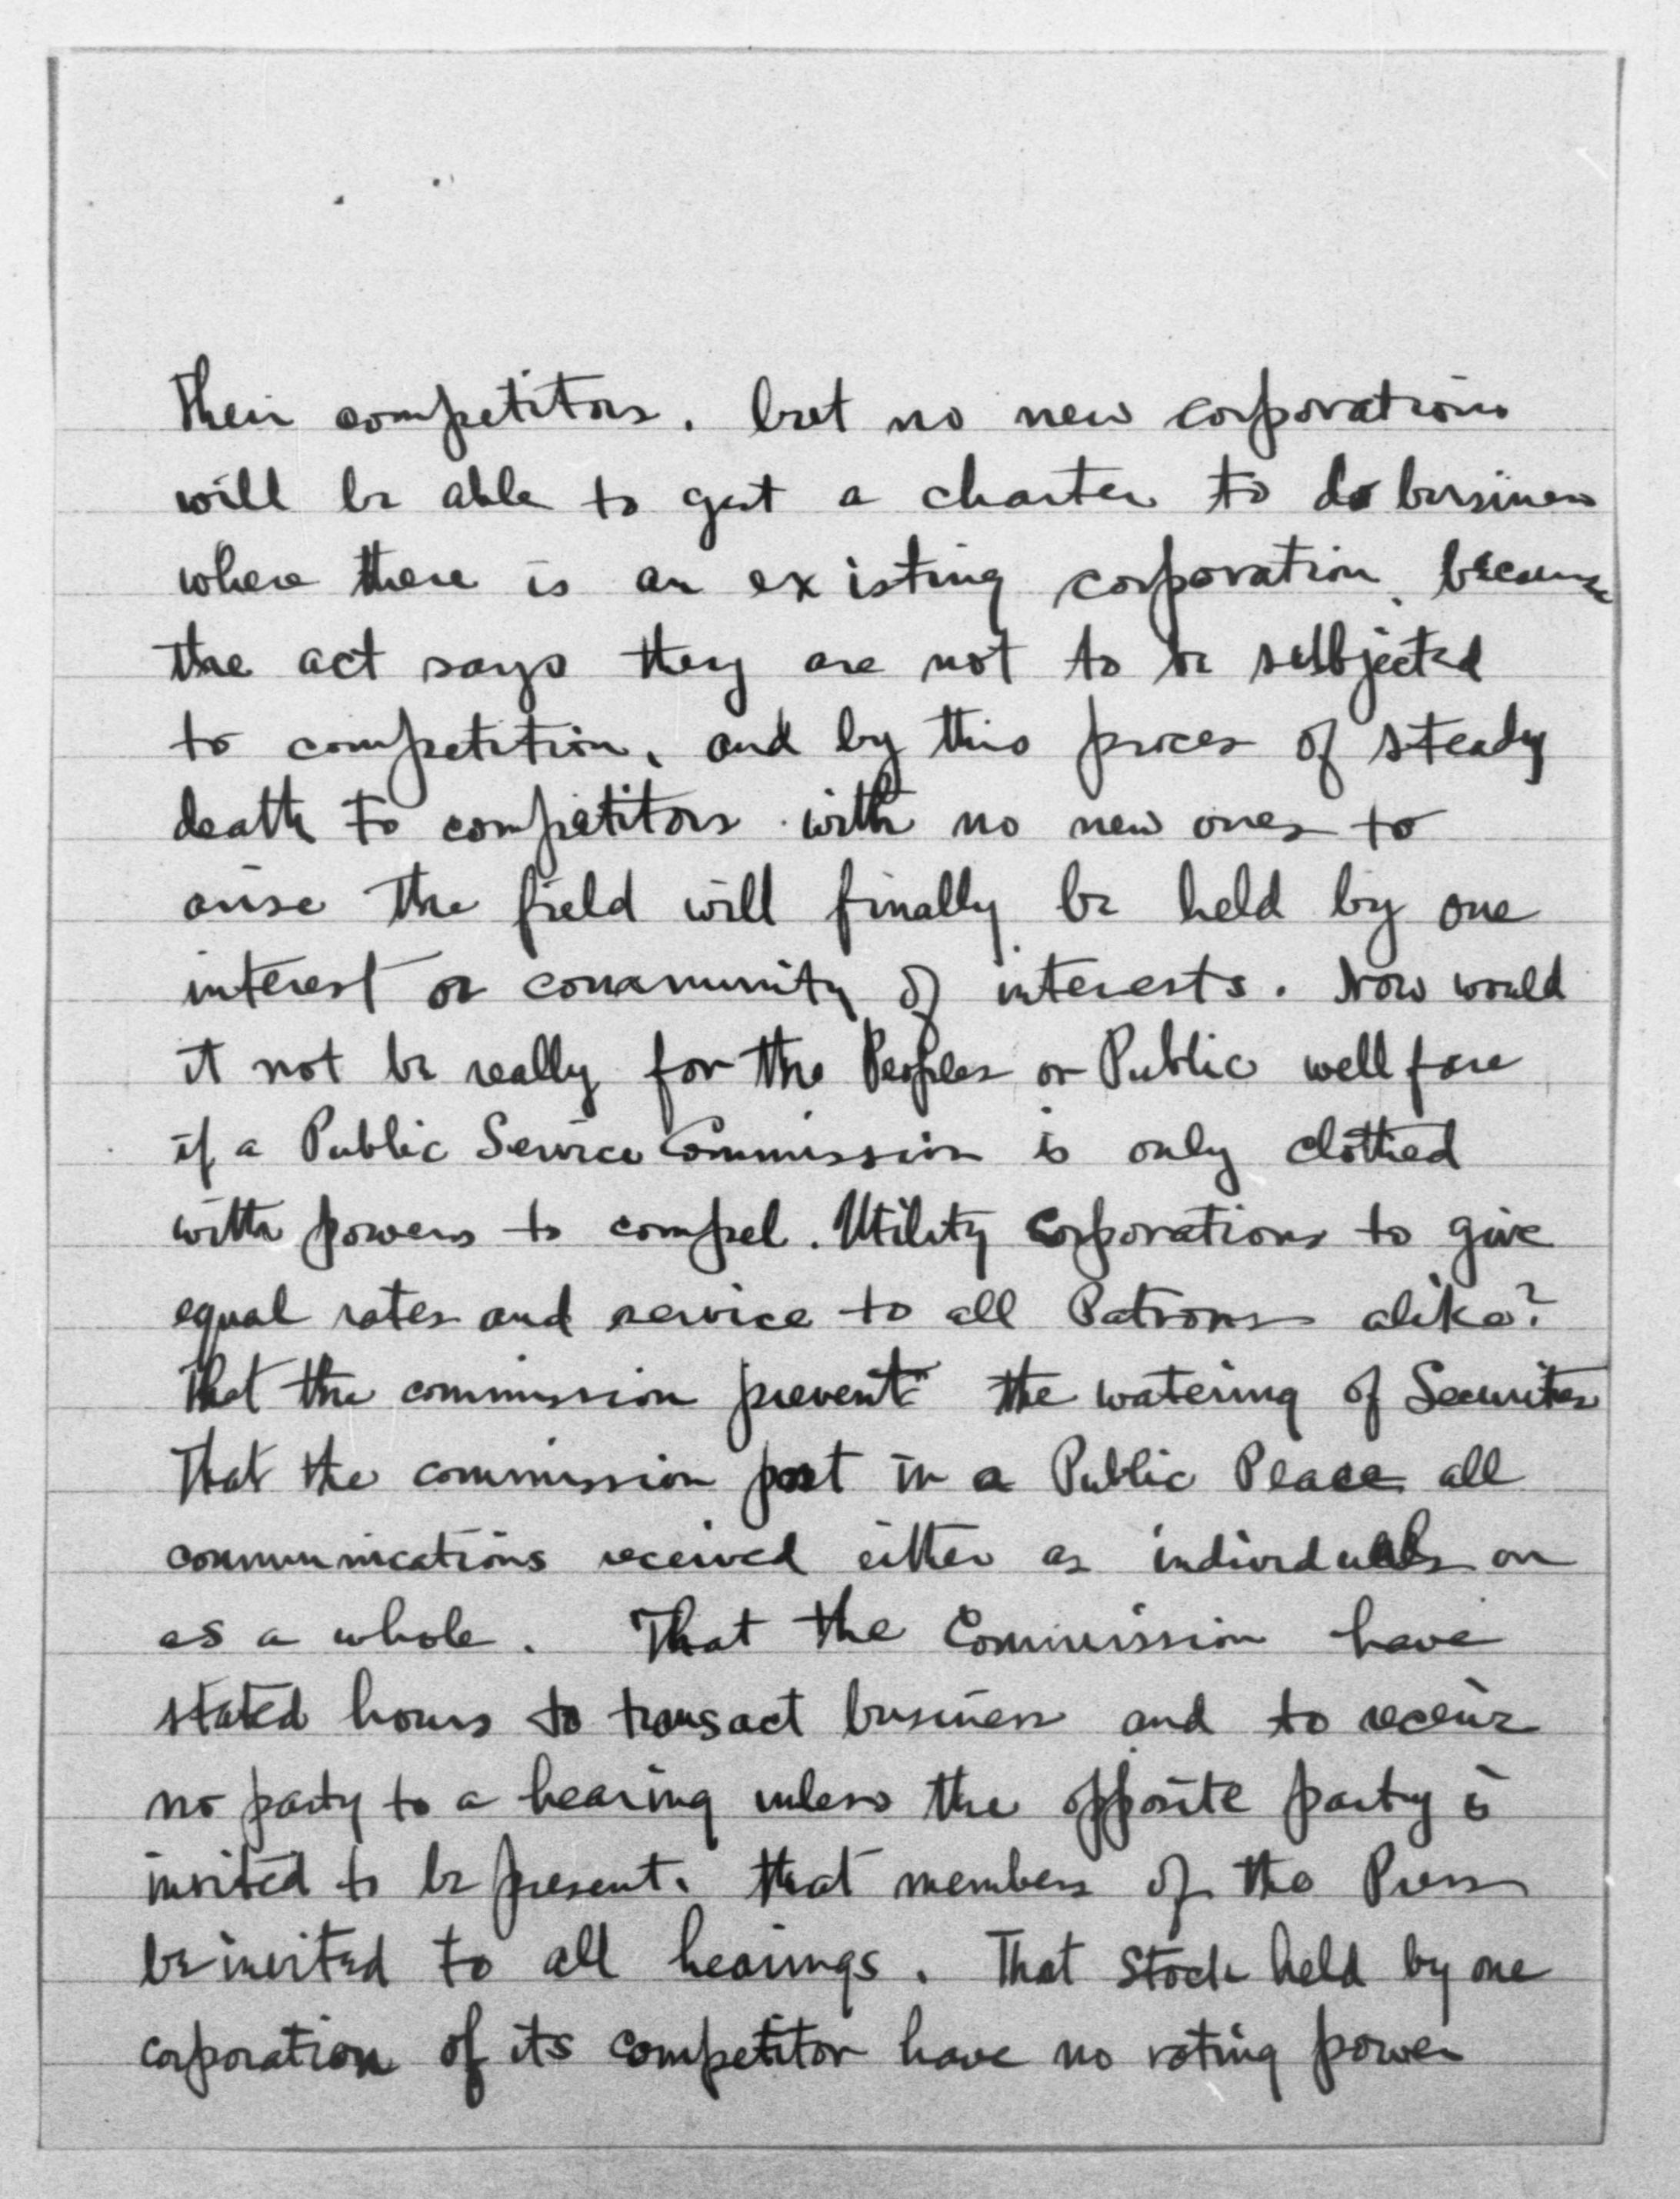 their competitors. but no new corporations
will be able to get a charter to do business
where there is an existing corporation, because
the act says they are not to be subjected
to competition, and by this proces of steady
death to competitors with no new ones to
arise the field will finally be held by one
interest or community of interests. Now would
it not be really for the Peoples or Public wellfare
if a Public Service Commission is only clothed
with powers to compel. Utility Corporations to give
equal rates and service to all Patrons alike?
That the commission prevent the watering of Securites
That the commission post in a Public Place all
communications received either as individuals or
as a whole. That the Commission have
stated hours to transact business and to receive
no party to a hearing unless the opposite party is
invited to be present. that members of the Press
be invited to all hearings. That Stock held by one
corporation of its competitor have no voting power